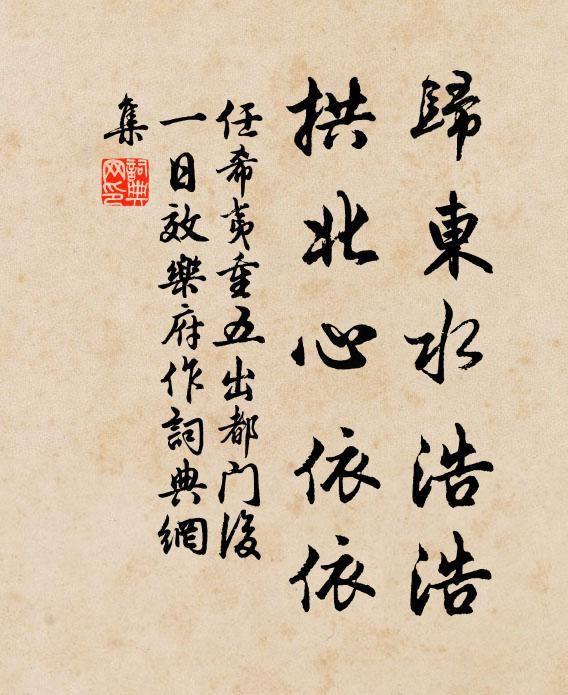 歸東水浩浩
拱北心依依
任希夷重五出都门後
一日效樂府作詞典網
集
詞典网印